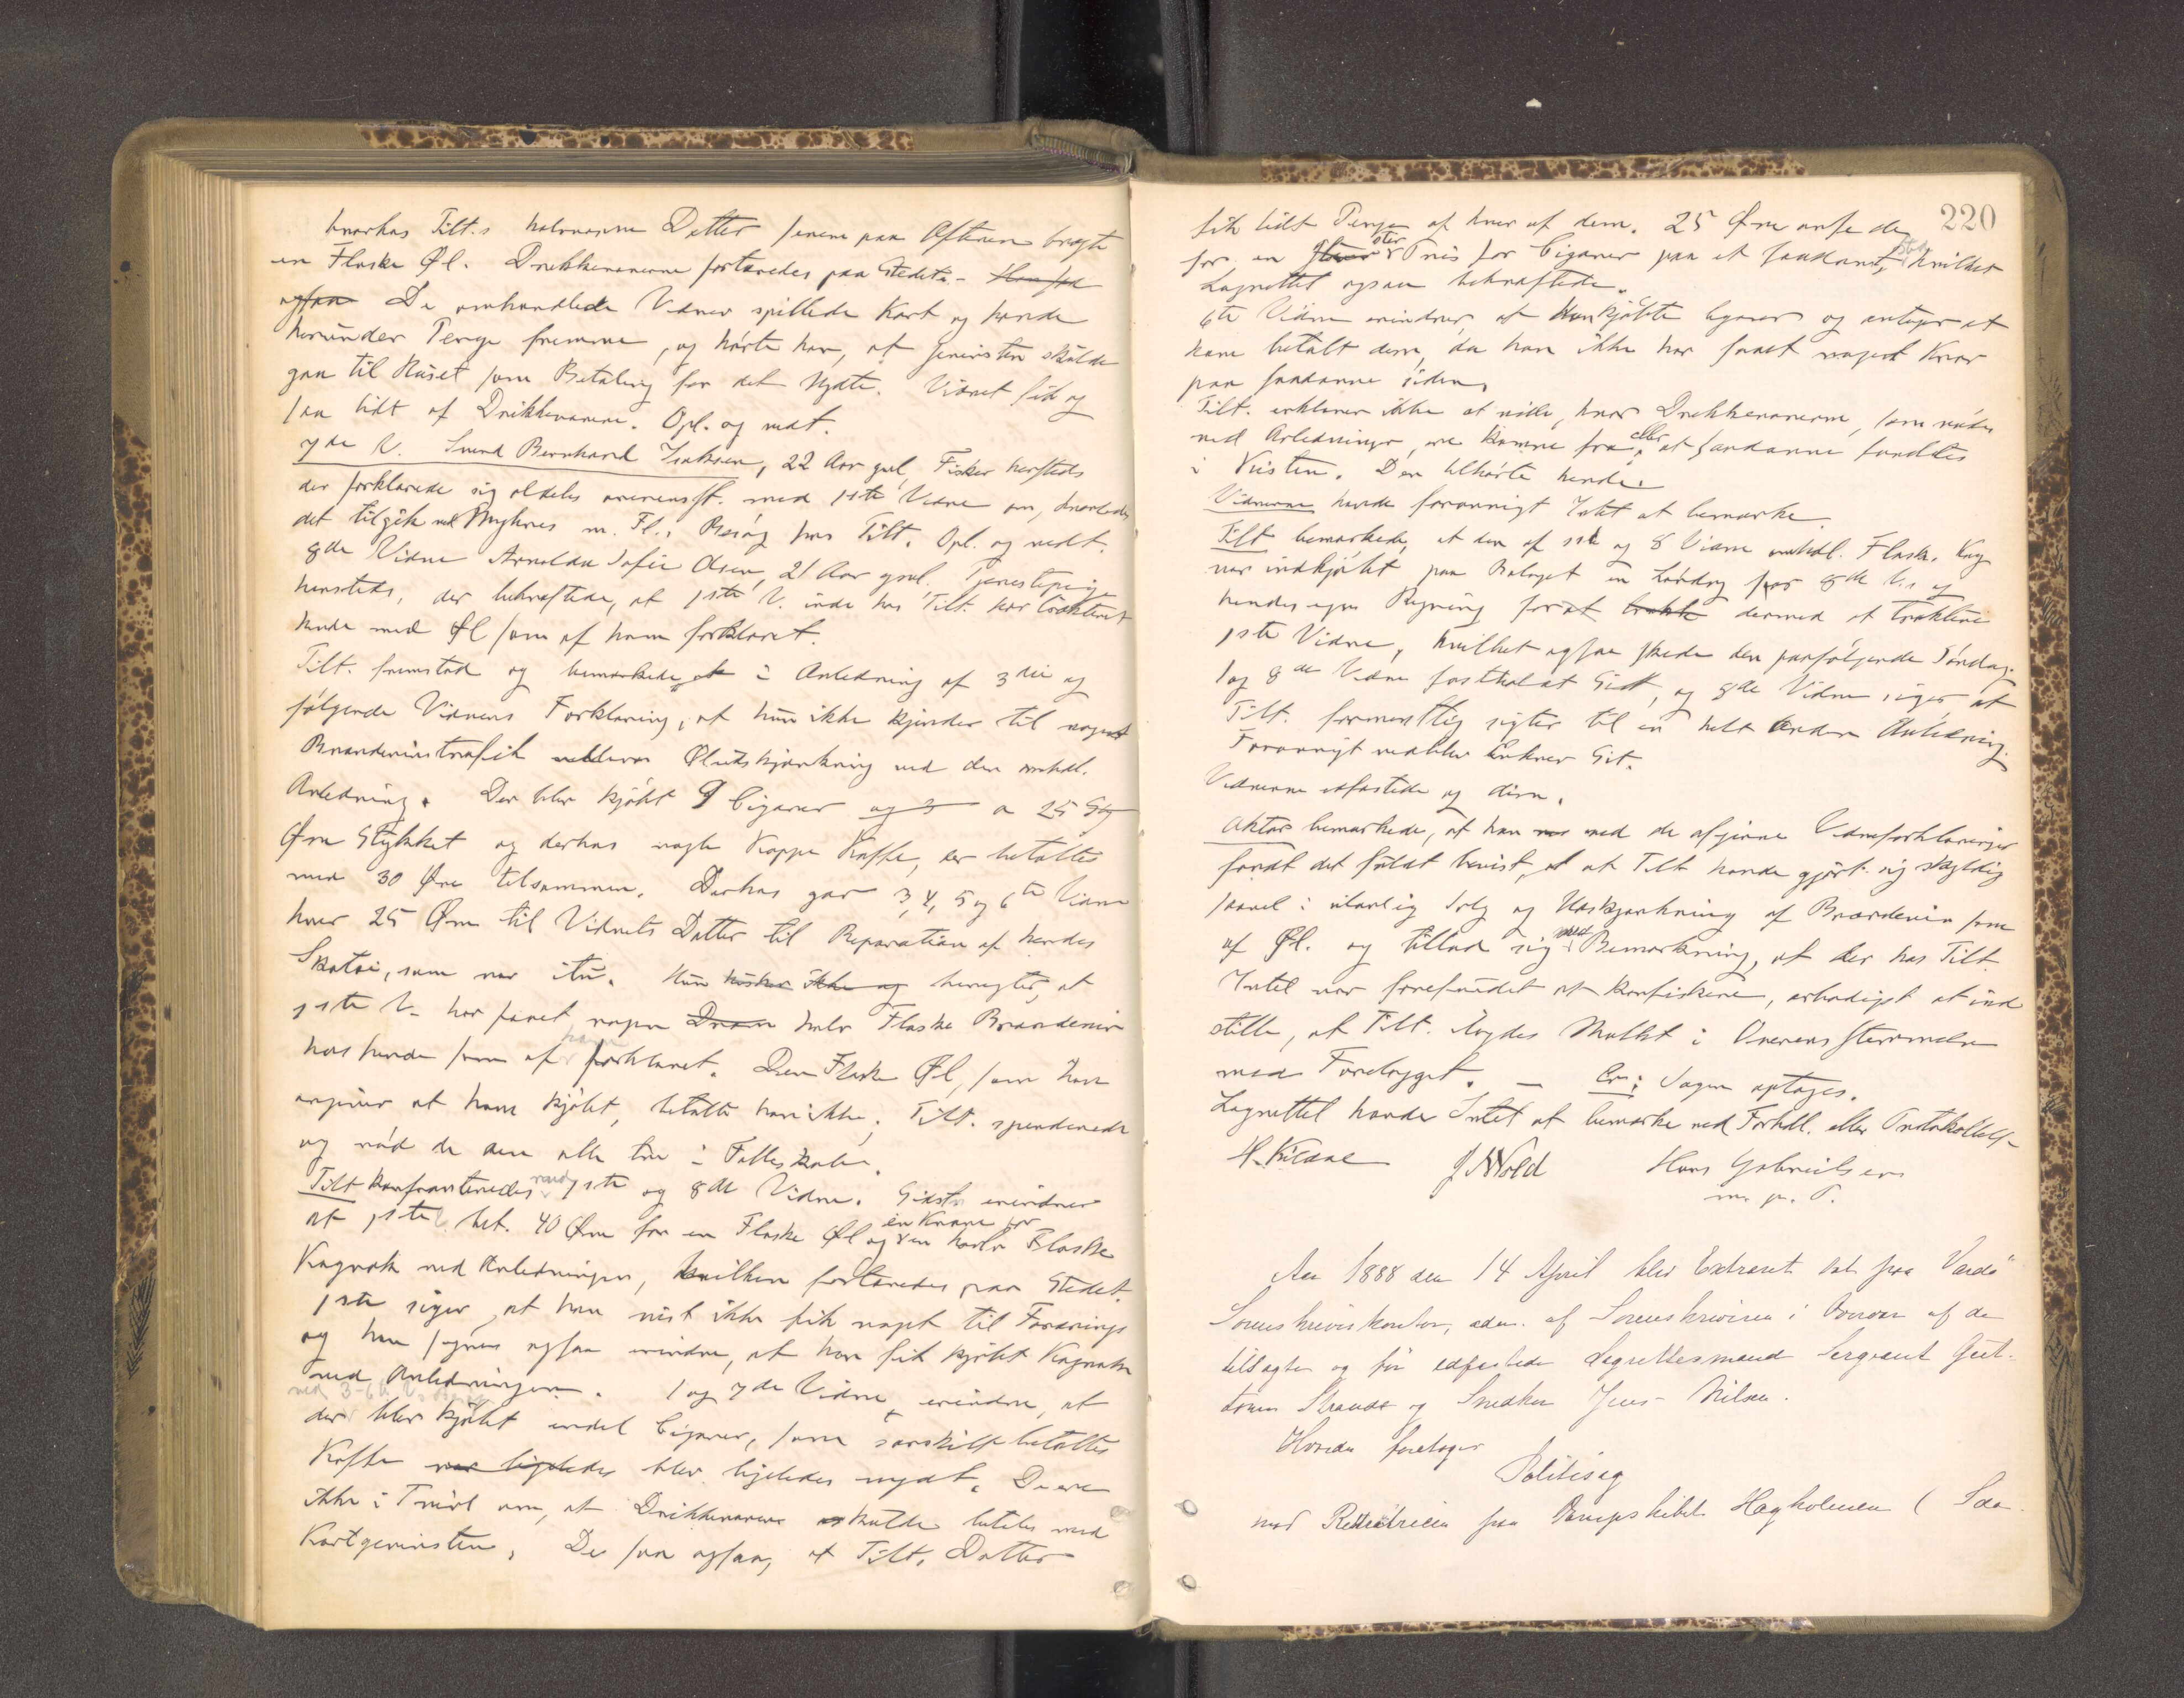 hvorhos Tilt.s halvvoxne Datter senere paa Aftenen bragte
en Flaske Øl. Drikkevarerne fortæredes paa Stedet.
ogsaa De omhandlede Vidner spillede Kort og havde
herunder Penge fremme, og hørte han, at Gevinsten skulde
gaa til Huset som Betaling for det Nydte. Vidnet fik og
saa lidt af Drikkevarene. Opl. og vedt.
7de V. Svend Bernhard Isaksen, 22 Aar gml, Fisker hersteds
der forklarede sig aldeles overensst. med 1ste Vidne om, hvorledes
det tilgik ved Myhres m. Fl.s Besøg hos Tilt. Opl. og vedt.
8de Vidne Arnolda Sofie Olsen, 21 Aar gml. Tjenestepige
hersteds, der bekræftede, at 1ste V. inde hos Tilt. har trakteret
hende med Øl som af ham forklaret.
Tilt. fremstod og bemærkede at i Anledning af 3die og
følgende Vidners Forklaring, at hun ikke kjender til noget
Brændevinstrafik Øludskjænkning ved den omhdl.
Anledning. Der blev kjøbt 9 Cigarer og 3 a 25
Øre Stykket og derhos nogle Koppe Kaffe, der betaltes
med 30 Øre tilsammen. Derhos gav 3, 4, 5 og 6te Vidne
hver 25 Øre til Vidnets Datter til Reparation af hendes
Skotøi, som var itu. Hun husker ikke og benegter, at
1ste V. har faaet nogen Dram halv Flaske Brændevin
hos hende som af ham forklaret. Den Flaske Øl, som han
angiver at have kjøbt, betalte han ikke; Tilt. spenderede
og nød de den alle tre i Fællesskab.
Tilt konfronteredes med 1ste og 8de Vidne. Sidstn erindrer
at 1ste V. bet. 40 Øre for en Flaske Øl og en Krone for en halv Flaske
Kognak ved Anledningen, hvilken fortæredes paa Stedet.
1ste siger, at han vist ikke fik noget til Foræring
og han synes ogsaa erindre, at han fik kjøbt Kognak
ved Anledningen. 1 og 7de Vidne erindre, at
ved 3-6te V.s Besøg
der blev kjøbt endel Cigarer, som særskilt betaltes
Kaffe var ligeledes blev ligeledes nydt. De ere
ikke i Tvivl om, at Drikkevarerne skulde betales med
Kortgevinsten. De saa ogsaa, at Tilt. Datter
220
fik lidt Penge af hver af dem. 25 Øre anse de
for en stor Pris for Cigarer paa et saadant Sted, hvilket
Lagrettet ogsaa bekræftede.
6te Vidne erindrer, at Han kjøbte Cigarer og antager at
have betalt dem, da han ikke har faaet noget Krav
paa saadanne siden.
Tilt. erklærer ikke at vide, hvor Drikkevarerne, som nødes
ved Anledningen, ere komne fra, eller at saadanne fandtes
i Kisten. Den tilhørte hende.
Vidnerne havde forøvrigt Intet at bemærke.
Tilt bemærkede, at den af 1ste og 8 Vidne omhdl. Flaske Kog
var indkjøbt paa Bolaget en Lørdag for 8de V.s og
hendes egen Regning for at trakte dermed at traktere
1ste Vidne, hvilket ogsaa skede den paafølgende Søndag.
1 og 8de Vidne fastholdt Sit, og 8de Vidne siger, at
Tilt. formentlig sigter til en helt anden Anledning.
Forøvrigt vedblev Enhver Sit.
Vidnerne edfæstede og dim.
Aktor bemærkede, at han med de afgivne Vidneforklaringer
fandt det fuldt bevist, at Tilt havde gjort sig skyldig
saavel i ulovlig Salg og Udskjænkning af Brændevin som
af Øl. og tillod sig med Bemærkning, at der hos Tilt.
Intet var forefundet at konfiskere, erbødigst at ind
stille, at Tilt. ilægdes Mulkt i Overensstemmelse
med Forelægget. — Er: Sagen optages.
Lagrettet havde Intet at bemærke ved Forhdl. eller Protokollat.
H. Kildal J Wold Hans Gabrielsen
m. p. P.
Aar 1888 den 14 April blev Extraret sat paa Vardø
Sorenskriverkontor, adm. af Sorenskriveren i Overvær af de
tilsagte og før edfæstede Lagrettesmænd Sergeant Gut-
tormsen Strands og Snedker Jens Nilsen.
Hvorda foretoges
Politisag
mod Restauratricen paa Dampskibet Høgholmen (Sda